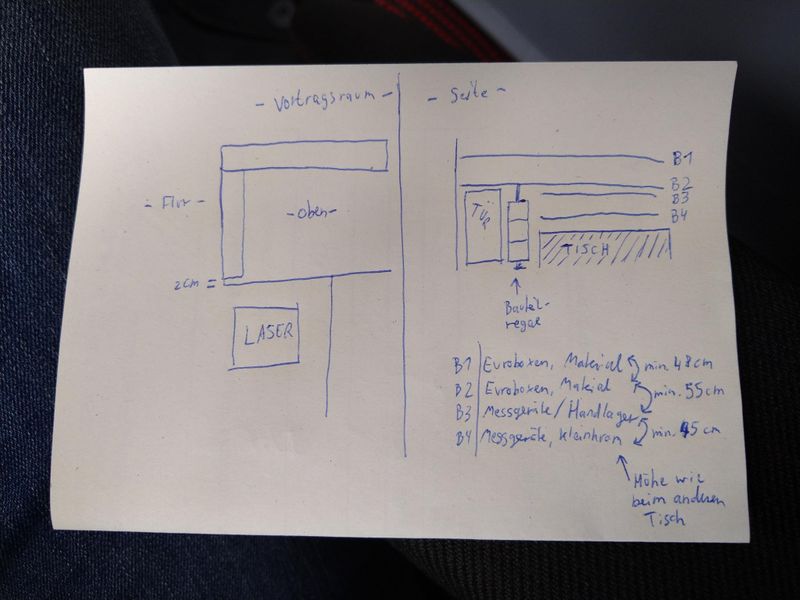 - Vortragsraum -
- Flur -
- Oben -
2cm =
LASER
- Seite -
B1
B2
B3
B4
Tür
TISCH
Bauteil-
regal
B1 Euroboxen, Material min. 48cm
B2 Euroboxen, Material min. 55cm
B3 Messgeräte/Handlager
B4 Messgeräte, Kleinkram min. 45cm
Höhe wie
beim anderen
Tisch